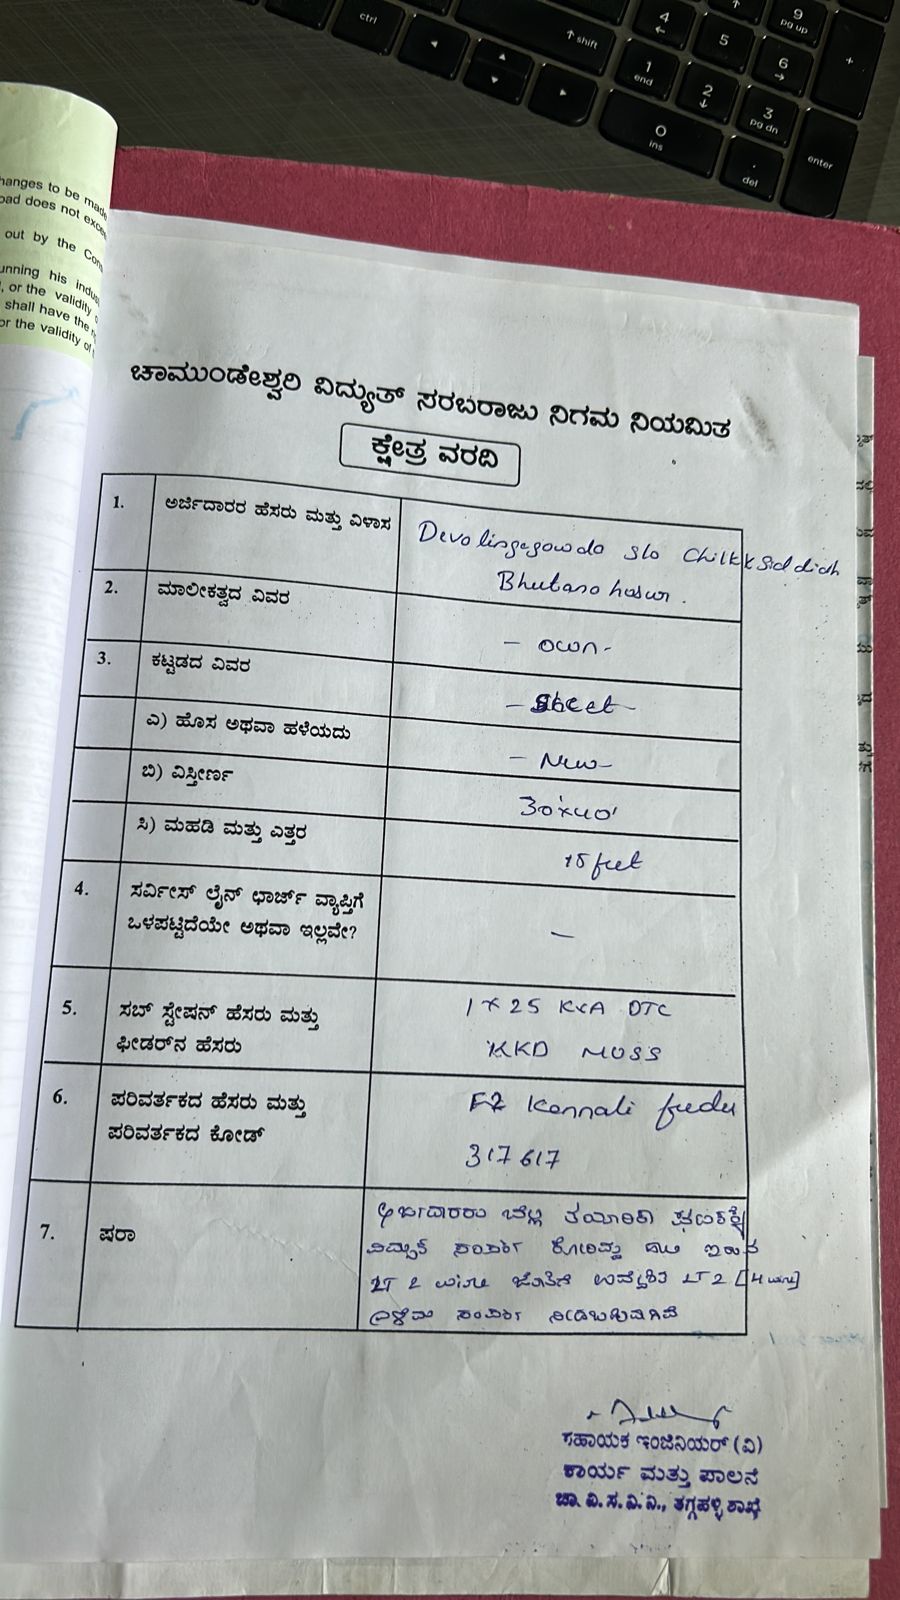 ctrl
shift
4
5
6
9
pg up
+
1
end
2
3
pg dn
0
ins
.
del
enter
hanges to be made
oad does not exce
out by the Con
unning his indus
, or the validity
shall have the
or the validity of
ಚಾಮುಂಡೇಶ್ವರಿ ವಿದ್ಯುತ್ ಸರಬರಾಜು ನಿಗಮ ನಿಯಮಿತ
ಕ್ಷೇತ್ರ ವರದಿ
1. ಅರ್ಜಿದಾರರ ಹೆಸರು ಮತ್ತು ವಿಳಾಸ
Devalingegowda s/o Chikksiddiah
Bhutanahosur.
2. ಮಾಲೀಕತ್ವದ ವಿವರ - own -
3. ಕಟ್ಟಡದ ವಿವರ - Sheet -
ಎ) ಹೊಸ ಅಥವಾ ಹಳೆಯದು - New -
ಬಿ) ವಿಸ್ತೀರ್ಣ 30'x40'
ಸಿ) ಮಹಡಿ ಮತ್ತು ಎತ್ತರ feet
4. ಸರ್ವೀಸ್ ಲೈನ್ ಛಾರ್ಜ್ ವ್ಯಾಪ್ತಿಗೆ
ಒಳಪಟ್ಟಿದೆಯೇ ಅಥವಾ ಇಲ್ಲವೇ? —
5. ಸಬ್ ಸ್ಟೇಷನ್ ಹೆಸರು ಮತ್ತು 1 x 25 KVA DTC
ಫೀಡರ್‌ನ ಹೆಸರು KKD MUSS
6. ಪರಿವರ್ತಕದ ಹೆಸರು ಮತ್ತು F2 Kennali feeder
ಪರಿವರ್ತಕದ ಕೋಡ್ 317617
7. ಷರಾ
ಅರ್ಜಿದಾರರು ಬೆಲ್ಲ ತಯಾರಿಕಾ
ವಿದ್ಯುತ್ ಸಂಪರ್ಕ ಕೋರಿದ್ದು
LT 2 ಜೊತೆಗೆ LT 2
ಸಂಪರ್ಕ ನೀಡಬಹುದಾಗಿದೆ
ಸಹಾಯಕ ಇಂಜಿನಿಯರ್ (ವಿ)
ಕಾರ್ಯ ಮತ್ತು ಪಾಲನೆ
ಚಾ.ವಿ.ಸ.ನಿ.ನಿ., ತಗ್ಗಹಳ್ಳಿ ಶಾಖೆ